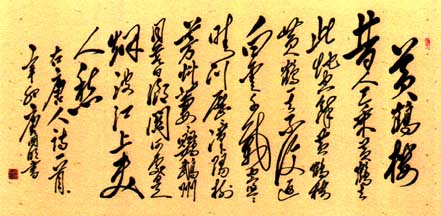 黄鹤楼
昔人已乘黄鹤去
此地空餘黄鹤楼
黄鹤一去不復返
白雲千載空悠悠
晴川歷歷漢陽樹
芳草萋萋鸚鵡洲
日暮鄉關何處是
烟波江上使
人愁
右唐人詩一首
辛卯 書